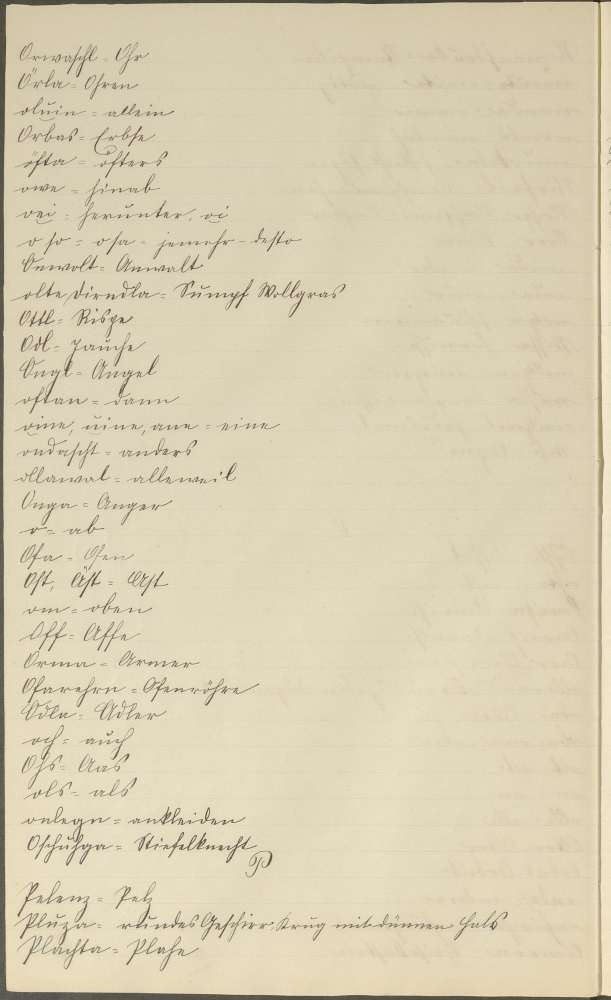 Orwaschl - Ohr
Örla - Ohren
oluin - allein
Orbas - Erbse
öfta - öfters
owe - hinab
oei - herunter, oi
o so - osa - jemehr - desto
Onwolt - Anwalt
olte Dirndla - Sumpf Wollgras
Ottl - Rispe
Odl - Jauche
Ongl - Angel
oftan - dann
oine, uine, ane - eine
ondascht - anders
ollawal - alleweil
Onga - Anger
o - ab
Ofa - Ofen
Ost, Äst - Ast
om - oben
Off - Affe
Orma - Armer
Ofarehrn - Ofenröhre
Odla - Adler
och - auch
Ohs - Aas
ols - als
onlegn - ankleiden
Oschuhga - Stiefelknecht
P
Pelenz - Pelz
Pluza - rundes Geschirr, Krug mit dünnen Hals
Plachta - Plahe